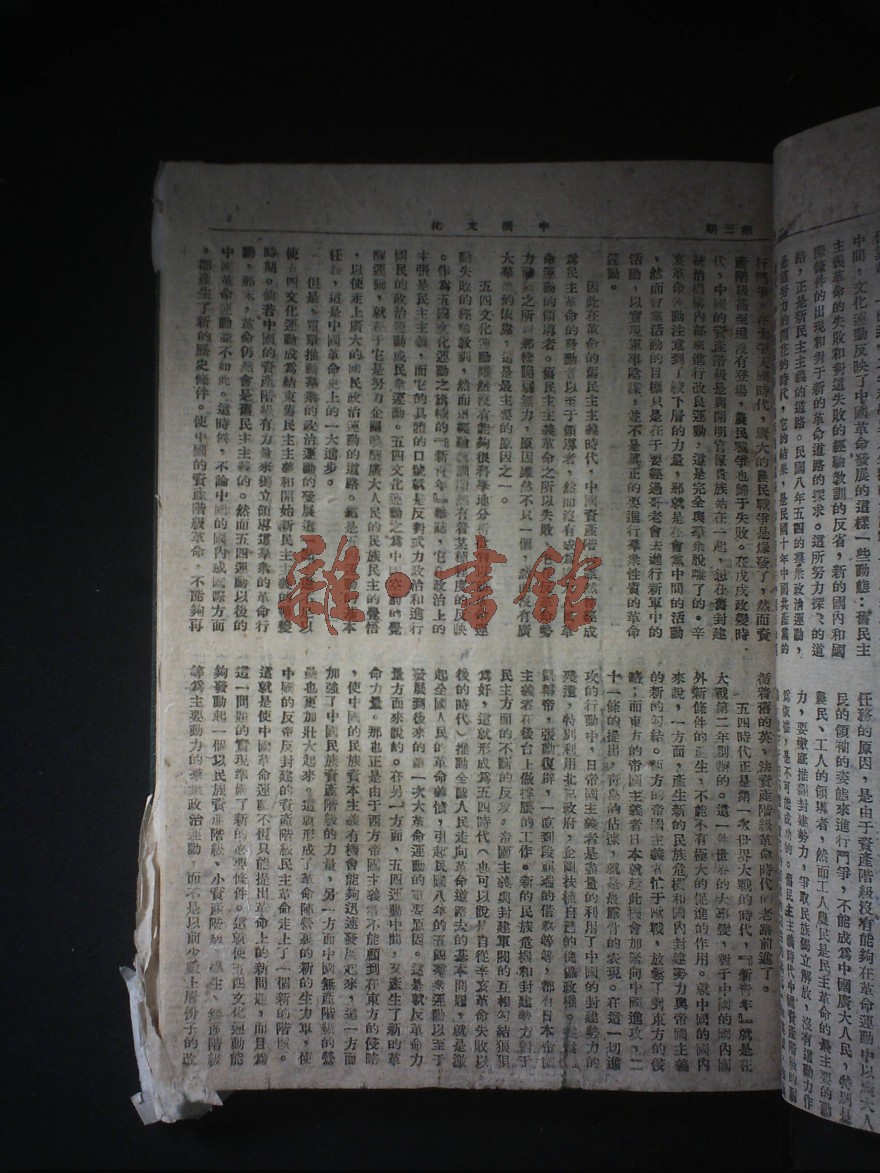 第三期
中國文化
行鬥爭。在太平天國時代，廣大的農民戰爭是爆發了，然而資
產階級甚至還沒有登場，農民戰爭也歸于失敗。在戊戌政變時
代，中國的資產階級是與開明官僚貴族站在一起，想在舊封建
統治機構內部來進行改良運動，這是完全與羣衆脫離了的。辛
亥革命運動注意到了較下層的力量，那就是在會黨中間的活動
，然而會黨活動的目標只是在于要經過哥老會去進行新軍中的
活動，以實現軍事陰謀，並不是眞正的要進行羣衆性質的革命
運動。
因此在革命的舊民主主義時代，中國資產階級
爲民主革命的發動者以至于領導者，然而沒有
命運動的領導者。舊民主主義革命之所以失敗
大羣衆的依靠，這是最主要的原因之一。
五四文化運動雖然沒有能夠很科學地分析
點失敗的經驗教訓，然而
。作爲五四文化運動之旗幟的『新靑年』雜誌，它在政治上的
主張是民主主義，而它的具體的口號就是反對武力政治和進行
國民的政治運動或民衆運動。五四文化運動之爲中
醒運動，就在于它是努力企圖喚醒廣大人民的民族民主的覺悟
，以使走上廣大的國民政治運動的道路。
任務，這是中國革命史上的一大進步。
但是，單單推動羣衆的政治運動的發展這一
使五四文化運動成爲結束舊民主主義和開始新民主主義的
時期。倘若中國的資產階級有力量來獨立領導這羣衆的革命行
動，那末，革命仍然會是舊民主主義的。然而五四運動以後的
中國革命運動並不如此。這時候，不論中國的國內或國際方面
，都產生了新的歷史條件。使中國的資產階級革命，不能夠再
循着舊的英、法資產階級革命時代的老路前進了。
五四時代正是第一次世界大戰的時代，『新靑年』就是在
大戰第二年創辦的。這一件世界的大事變，對于中國的國內國
外新條件的產生，不能不有極大的促進的作用。就中國的國內
來說，一方面，產生新的民族危機和國內封建勢力與帝國主義
的新的勾結。西方的帝國主義者忙于歐戰，放鬆了對東方的侵
略；而東方的帝國主義者日本就趁此機會加緊向中國進攻，二
十一條的提出，靑島的佔據，就是最露骨的表現。在這一切進
攻的行動中，日帝國主義者是盡量的利用了中國的封建勢力的
殘遺，特別利用北
凱稱帝，張勳復辟，一直到段祺瑞的借款等等，都有日本帝國
主義者在後台上做撐腰的工作。新的民族危機和封建勢力對于
民主方面的不斷的反攻，帝國主義與封建軍閥的互相勾結狼狽
爲奸，這就形成爲五四時代（也可以說是自從辛亥革命失敗以
後的時代）推動全國人民走向革命道路去的基本問題，就是激
起全國人民的革命義憤，引起民國八年的五四羣衆運動以至于
發展到後來的第一次大革命運動的重要原因。這是就反革命力
量方面來說的。在另一方面，五四運動中間，又產生了新的革
命力量。那也正是由于西方帝國主義當不能顧到在東方的侵略
，使中國的民族資本主義有機會能夠迅速發展起來，這一方面
加强了中國民族資產階級的力量，另一方面中國無產階級的聲
量也更加壯大起來，這就形成了革命陣營裏的新的生力軍，使
中國的反帝反封建的資產階級民主革命走上了一個新的階段。
這就是使中國革命運動不僅只能提出革命上的新問題，而且爲
這一問題的實現準備了新的必要條件。這就使五四文化運動能
夠發動起一個以民族資產階級、小資產階級、學生、無產階級
等爲主要動力的羣衆政治運動，而不是以前少數上層份子的改
中間，文化運動反映了中國革命發展的這樣一些動態：舊民主
主義革命的失敗和對這失敗的經驗教訓的反省，新的國內和國
際條件的出現和對于新的革命道路的探求。這所努力探求的道
路，正是新民主主義的道路。民國八年五四的羣衆政治運動，
是這努力的開花的時代，它的結果，是民國十年中國共產黨的
任務的原因，是由于資產階級沒有能夠在革命運動中以廣大人
民的領袖的姿態來進行鬥爭，不能成爲中國廣大人民，特別是
農民、工人的領導者，然而工人農民是民主革命的最主要的動
力，要徹底推翻封建勢力，爭取民族獨立解放，沒有這動力作
爲依據，是不可能成功的。舊民主主義時代中國資產階級的
雜·書館